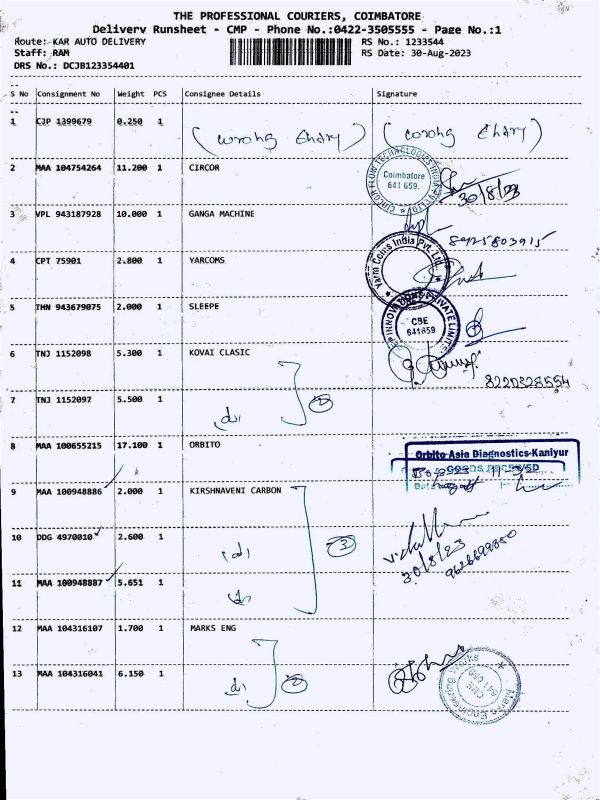 THE PROFESSIONAL COURIERS, COIMBATORE
Delivery Runsheet - CMP - Phone No.:0422-3505555 - Page No.:1
Route: KAR AUTO DELIVERY
RS No.: 1233544
Staff: RAM
RS Date: 30-Aug-2023
DRS No.: DCJB123354401
S No Consignment No Weight PCS Consignee Details Signature
1 CJP 1399679 0.250 1 (wrong Entry) (wrong Entry)
2 MAA 104754264 11.200 1 CIRCOR
CIRCOR FLOW TECHNOLOGIES INDIA PVT LTD
Coimbatore
641 659.
30/8/23
3 VPL 943187928 10.000 1 GANGA MACHINE
8925803915
4 CPT 75901 2.800 1 YARCOMS
Yarm Coms India Pvt. Ltd
5 THN 943679075 2.000 1 SLEEPE
PRIVATE LIMITED
CBE
641659
6 TNJ 1152098 5.300 1 KOVAI CLASIC
8220328554
7 TNJ 1152097 5.500 1
(d)
2
8 MAA 100655215 17.100 1 ORBITO
Orbito Asia Diagnostics-Kaniyur
GOODS RECEIVED
9 MAA 100948886 2.000 1 KIRSHNAVENI CARBON
10 DDG 4970010 2.600 1
(d)
3
30/8/23
11 MAA 100948887 5.651 1
12 MAA 104316107 1.700 1 MARKS ENG
13 MAA 104316041 6.150 1
2
Marks Engineering Works
CBE
641 659